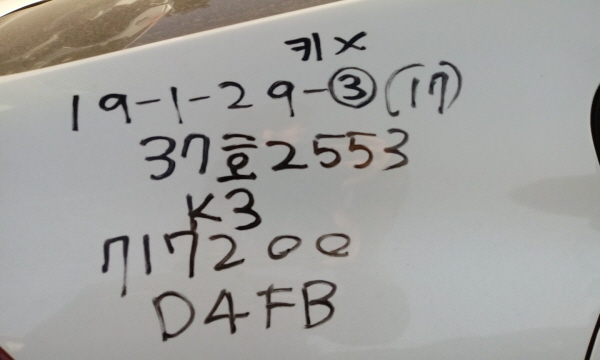 키×
19-1-29-③(17)
37호2553
K3
717200
D4FB